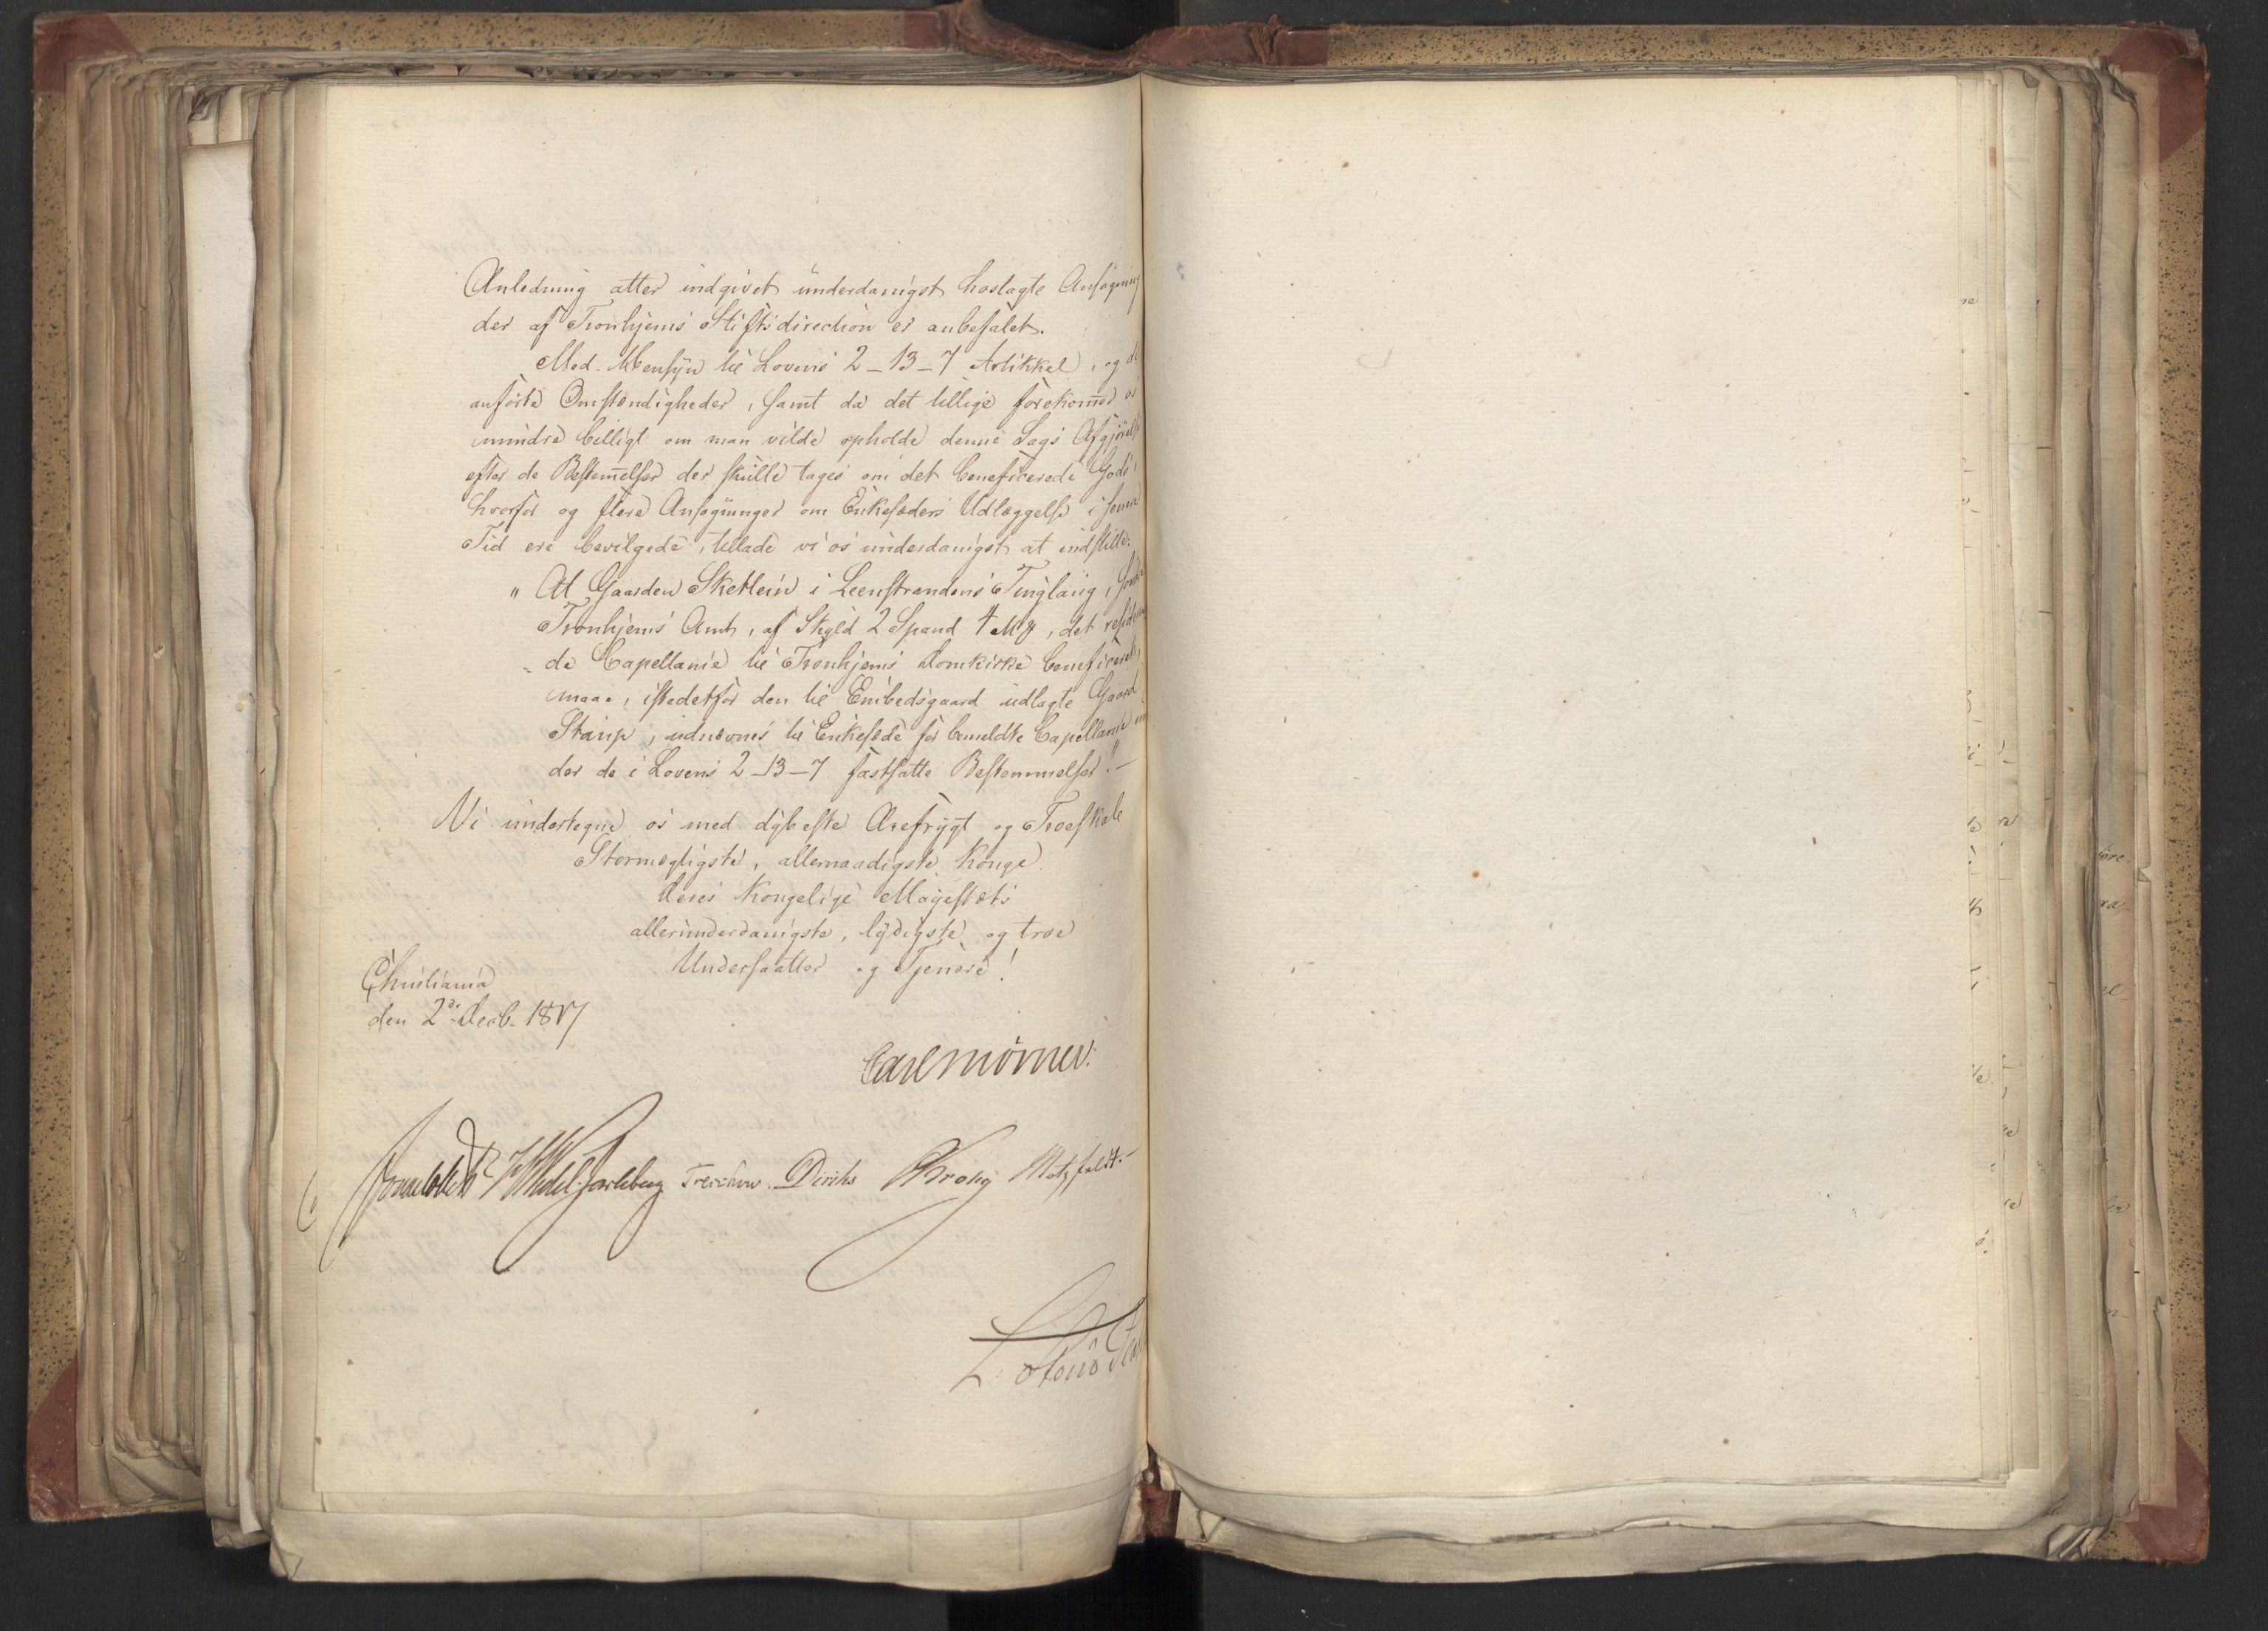 Anledning atter indgivet underdanigst hoslagte Ansøgning
der af Tronhjems Stiftsdirection er anbefalet.
Med Hensyn til Lovens 2-13-7 Artikkel, og de
anførte Omstændigheder, samt da det tillige forekommer os
mindre billigt om man vilde opholde denne Sags Afgjørelse
efter de Bestemmelser der skulle tages om det beneficerede Gods,
hvorfor og flere Ansøgninger om Enkesæders Udlæggelse i senere
Tid ere bevilgede, tillade vi os underdanigst at indstille:
"At Gaarden Sketlein i Leenstrandens Tinglaug, Søndre
Tronhjems Amt, af Skyld 2 Spand 4 Mg, det residere
de Capellanie til Tronhjems Domkirke beneficeret,
maae, istedetfor den til Embedsgaard udlagte Gaard
Stavne, udnævnes til Enkesæde for bemeldte Capellanie un
der de i Lovens 2-13-7 fastsatte Bestemmelser."-
Vi undertegne os med dybeste Ærefrygt og Troeskab
Stormægtigste, allernaadigste Konge.
Deres Kongelige Majestæts
allerunderdanigste, lydigste og troe
Undersaatter og Tjenere!
Christiania
den 2de Decb. 1817
Carl Mörner.
Sommerhielm HWedel Jarlsberg Treschow Diriks Krohg Motzfeldt.-